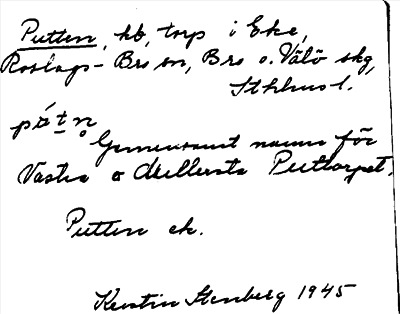 Putten, hb, torp i Eke,
Roslags-Bro sn, Bro o. Vätö skg,
Sthlms l.
pɵ́tn̥
Gemensamt namn för
Västra o Mellersta Puttorpet.
Putten ek.
Kerstin Stenberg 1945